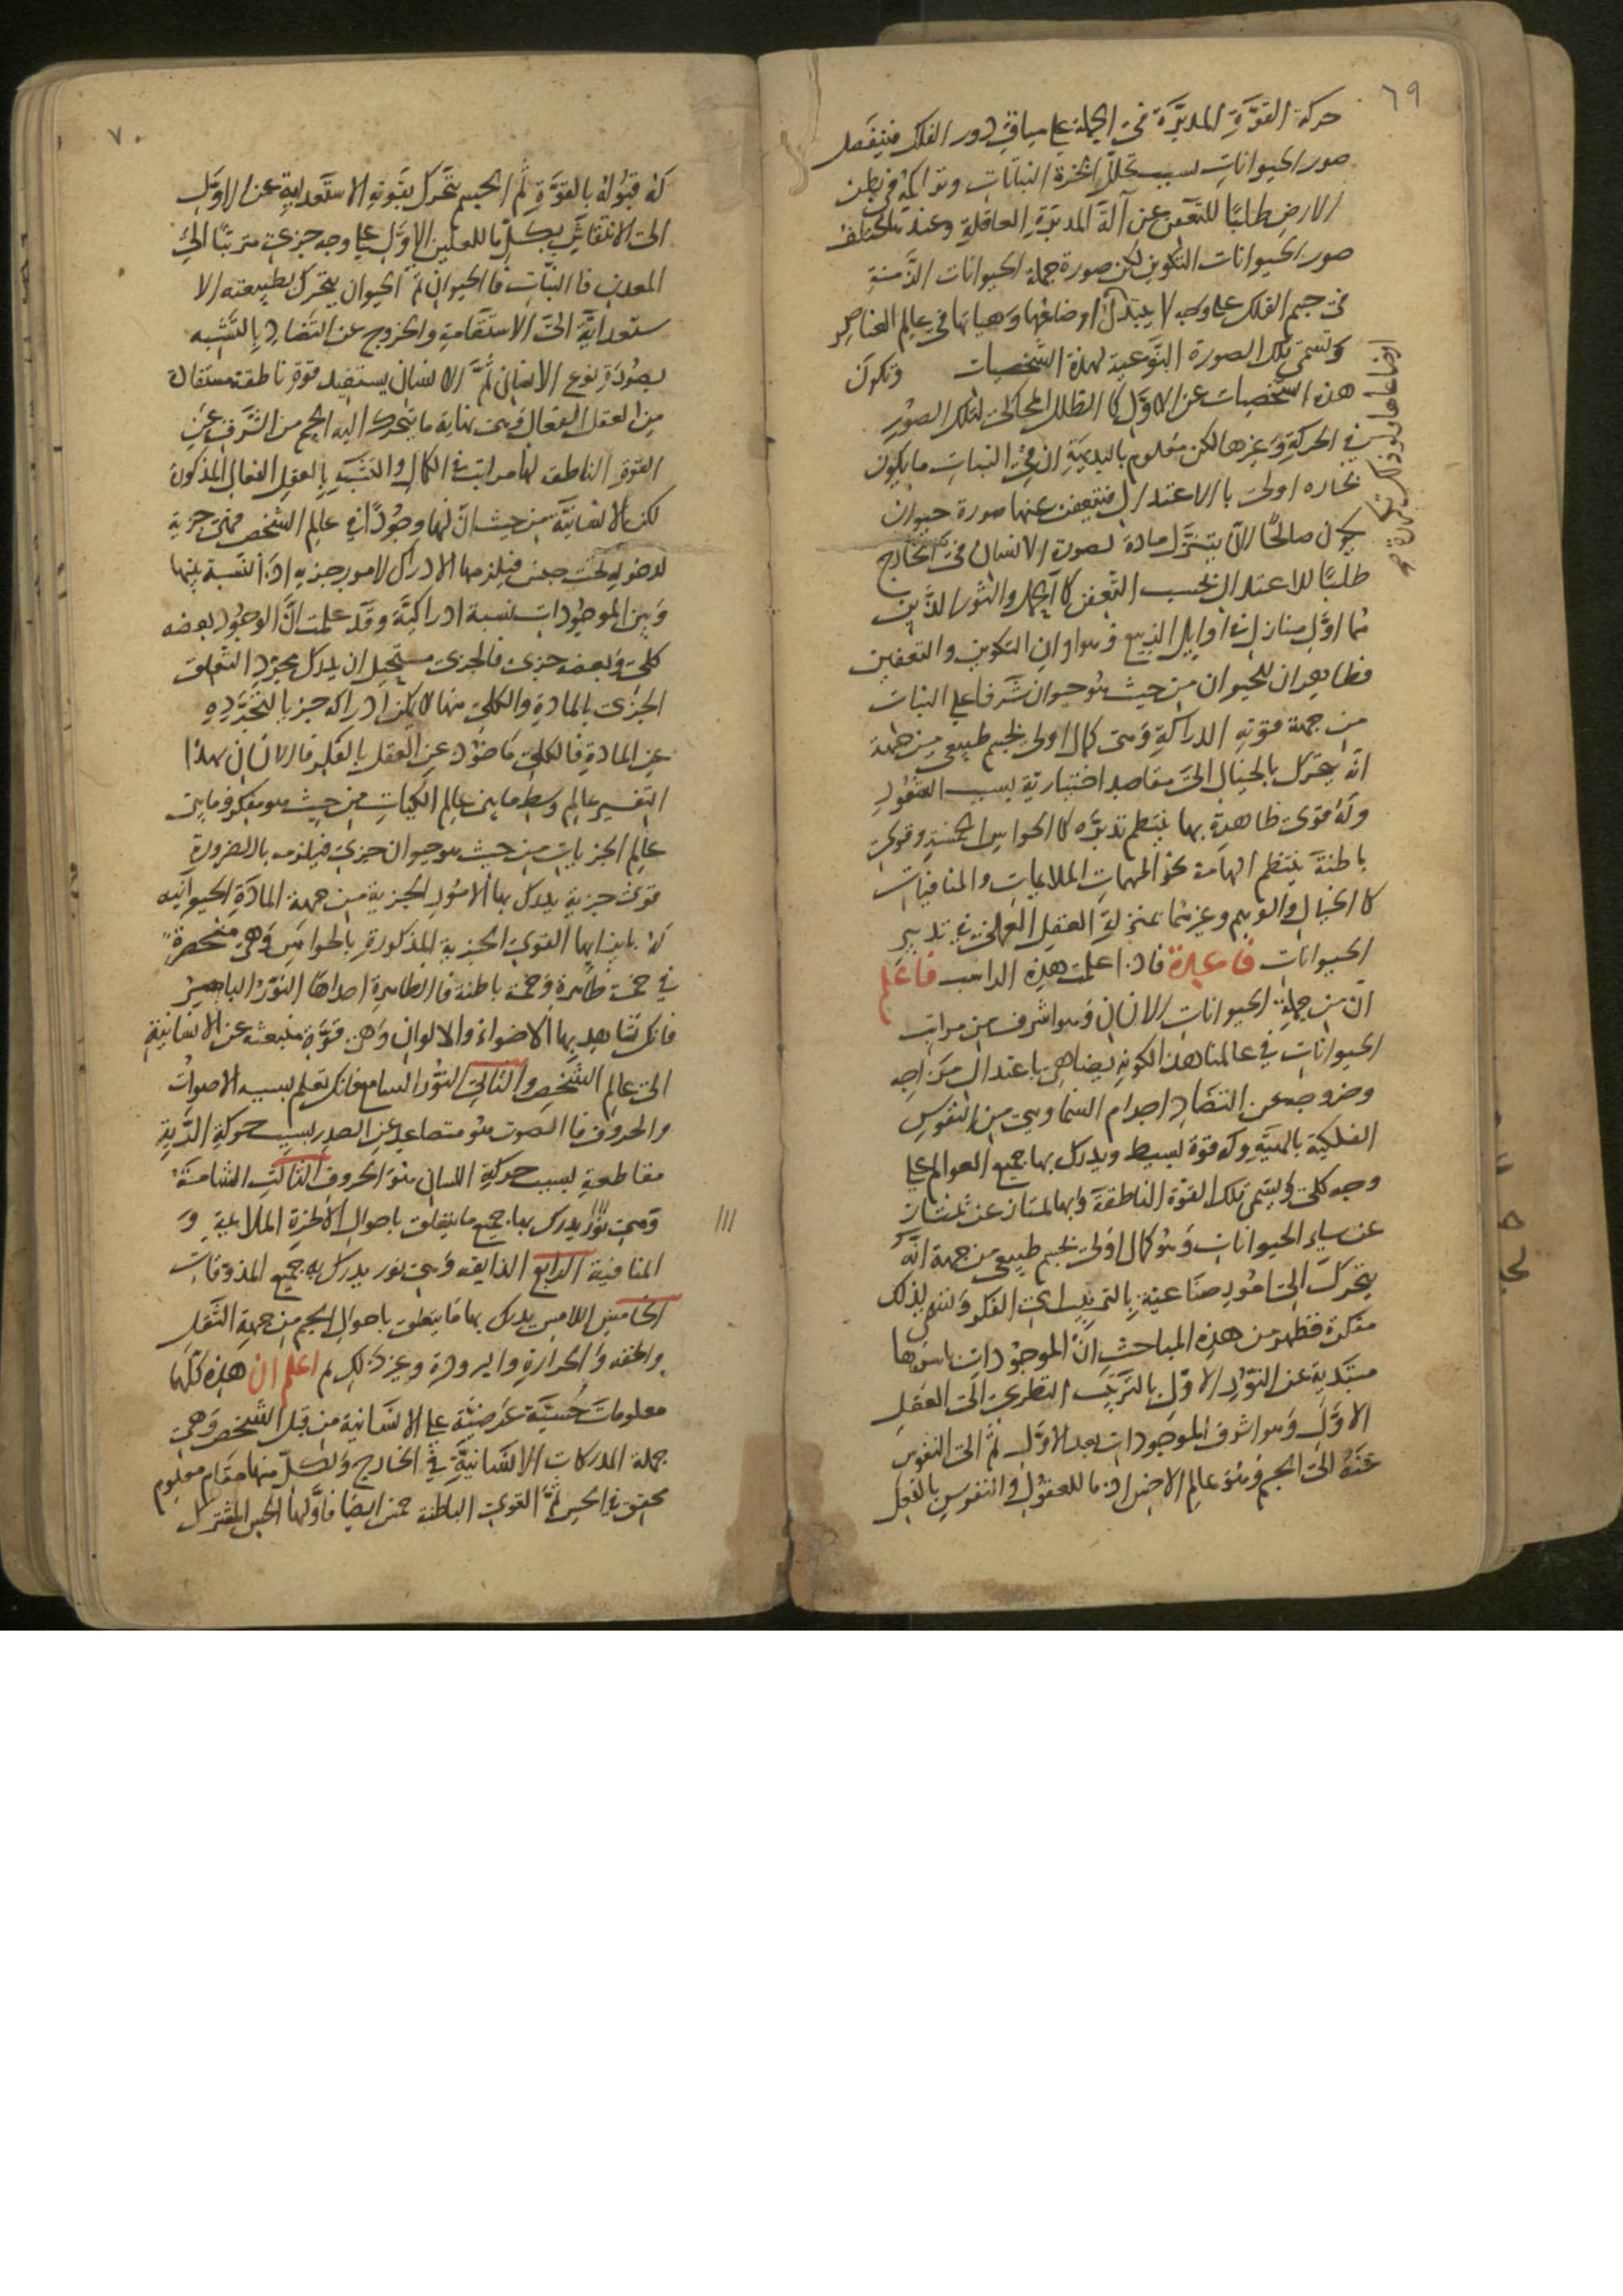 ٦٩
حركة القوّة المدبّرة في الجملة على سياق دور الفلك فيتفصل
صور الحيوانات بسبب تحلل ابخرة النباتات وتراكمه في بطن
الارض طلبًا للتعفن عن آلة المدبّرة العاقلة وعند تختلف
صور الحيوانات التكوين لكن صورة جملة الحيوانات الذّمنة
في جسم الفلك على وجه لا يتبدل اوضاعها وهياتها في عالم العناصر
وتسمى تلك الصورة النوعية لهذه الشخصيات وتكون
هذه الشخصيات عن الاوّل كا الظلال المحاكى لتلك الصور
في الحركة وغيرها لكن معلوم بالبديهة ان في النبات ما يكون
بخاره اولى با الاعتدال فيتعفن عنها صورة حيوان
يكون صالحًا لان يتنزل مادة لصورة الانسان في الخارج
طلبًا للاعتدال بحسب التعفن كا الحمل والثور اللذين
هما اوّل منازل في اوايل الربيع وهو اوان التكوين والتعفين
فظاهر ان للحيوان من حيث هو حيوان شرفا على النبات
من جهة قوته الدراكة وهي كمال اولى لجسم طبيعي من جهة
انّه يتحرك بالخيال الى مقاصد اختيارية بسبب الشعور
وله قوى ظاهرة بها ينتظم تدبره كا الحواس الخمسة وقوى
باطنة ينتظم الهامه نحو المهمات الملايمات والمنافيات
كا الخيال والوهم وغيرهما بمنزلة العقل العملى في تدبير
الحيوانات قاعدة فاذا علمت هذه المراتب فاعلم
انّ من جملة الحيوانات الانسان وهو اشرف من مراتب
الحيوانات في عالمنا هذا لكونه يضاهى باعتدال مزاجه
وخروجه عن التضاد اجرام السماويى من النفوس
الفلكية بالهيّة وله قوة بسيط ويدرك بها جميع العوالم على
وجه كلى ويسمى تلك القوة الناطقة وبها يمتاز عن
عن ساير الحيوانات وهو كمال اولى لجسم طبيعى من جهة انّه
يتحرك الى امور صناعية بالترتيب اى الفكر وتسمى لذلك
مفكرة فظهر من هذه المباحث انّ الموجودات باسرها
مبتدية عن النّور الاوّل بالترتب النظرى الى العقل
الاوّل وهو اشرف الموجودات بعد الاوّل ثمّ الى النفوس
عنه الى الجسم وهو عالم الاخس اذ ما للعقول والنفوس بالفعل
٧٠
له قبوله بالقوّة ثمّ الجسم يتحرك بقوته الاستعدادية عن الاوّل
الى الانتقاش بكلّ ما للعلين الاوّل على وجه جزئى مترتبًا الى
المعدن فا النبات فا الحيوان ثمّ الحيوان يتحرك بطبيعته الا
ستعدايّة الى الاستقامة والخروج عن التضاد بالتشبه
بصورة نوع الانسانى ثمّ الانسان يستفيد قوة ناطقة مستقالة
من العقل الفعال وهى نهاية ما يتحرك اليه الجسم من الشرف عن
القوة الناطقه لها مراتب في الكمال والتشبه بالعقل الفعال المذكورة
لكن الانسانيّة من حيث انّ لها وجودًا في عالم الشخص فهى جزية
لدخوله تحت جنس فيلزمها الادراك لامور جزيه اذ النسبة بينها
وبين الموجودات نسبة ادراكيّة وقد علمت انّ الوجود بعضه
كلى وبعضه جزى فالجزى مستحيل ان يدرك مجرد التعلق
الجزى بالمادة والكلى منها لا يمكن ادراكه جز بالتجرّده
عن المادة فا لكلى ماخوذ عن العقل بالفكر فا الانسان بهذا
التفسير عالم وسط ما بين عالم الكليات من حيث هو مفكر وما بين
عالم الجزيات من حيث هو حيوان جزى فيلزمه بالضرورة
قوى جزية يدرك بها الامور الجزية من جهة المادّة الحيوانيه
له بايديها القوى الجزية المذكورة بالحواس وهى منحصرة
في خمسة ظاهرة وخمسة باطنة فا الظاهرة احداها النّور الباصر
فانك تشاهد بها الاضواء والالوان وهى قوة منبعثه عن الانسانية
الى عالم الشخص والثانى النّور السامع فانك تعلم بسببه الاصوات
والحروف فا الصوت هو متصاعد عن الصدر بسبب حركة الرية
مقاطعة بسبب حركة اللسان هو الحروف الثالث الشامة
وهى نور يدرك بها جميع ما يتعلق باحوال الابخرة الملايمة و
المنافية الرابع الذايقه وهى نور يدرك به جميع المذوقات
الخامس اللامس يدرك بها ما يتعلق باحوال الجسم من جهة الثقل
والخفه والحرارة والبرودة وغير ذلك ثم اعلم ان هذه كلّها
معلومات حسيّة عرضيّة على الانسانية من قبل الشخص وهى
جملة المدركات الانسانيّة في الخارج ولكلّ منها مقام معلوم
محقق في الحس ثمّ القوى الباطنة خمس ايضا فاوّلها الحس المشترك